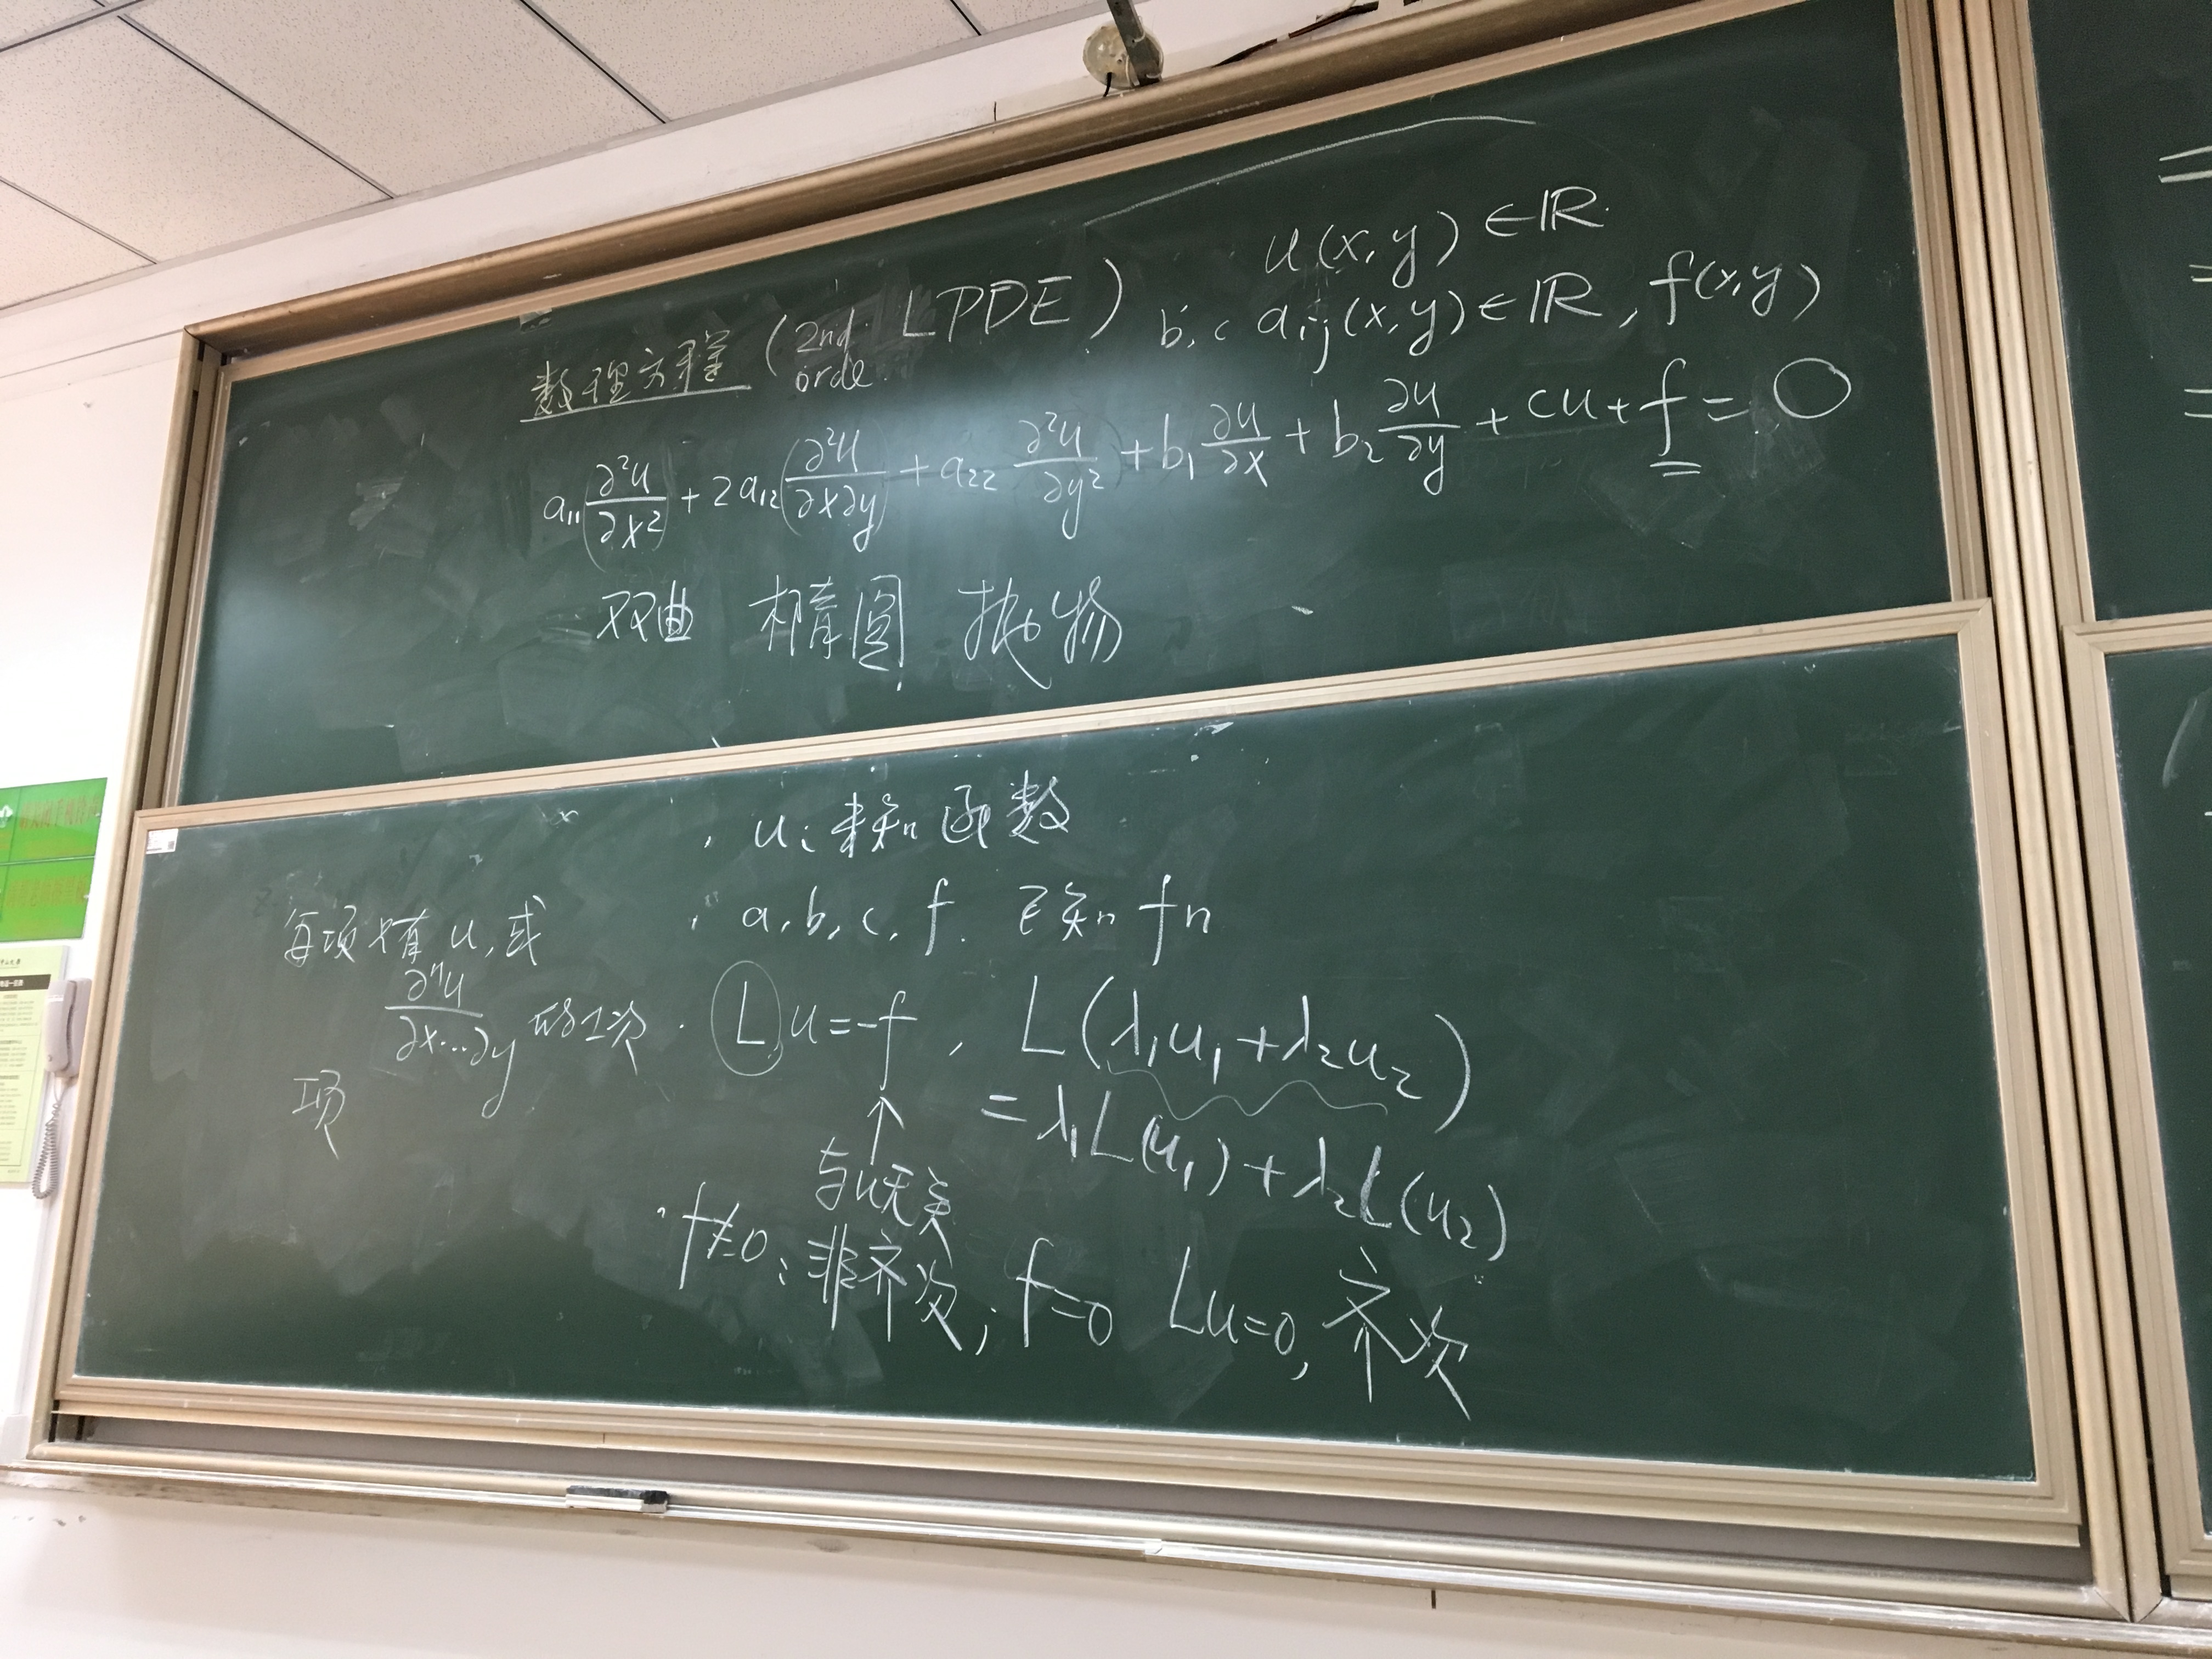 u(x,y) ∈ ℝ.
数理方程 (2nd orde. LPDE) b,c a_ij(x,y) ∈ ℝ, f(x,y)
a₁₁ ∂²u/∂x² + 2a₁₂ ∂²u/∂x∂y + a₂₂ ∂²u/∂y² + b₁ ∂u/∂x + b₂ ∂u/∂y + cu + f = 0
双曲 椭圆 抛物
u: 未知函数
a, b, c, f. 已知 fn
每项只有 u, 或
∂ⁿu/∂x…∂y 的1次
项
Lu = -f , L(λ₁u₁ + λ₂u₂)
= λ₁L(u₁) + λ₂L(u₂)
↑
与u无关
f≠0: 非齐次; f=0 Lu=0, 齐次